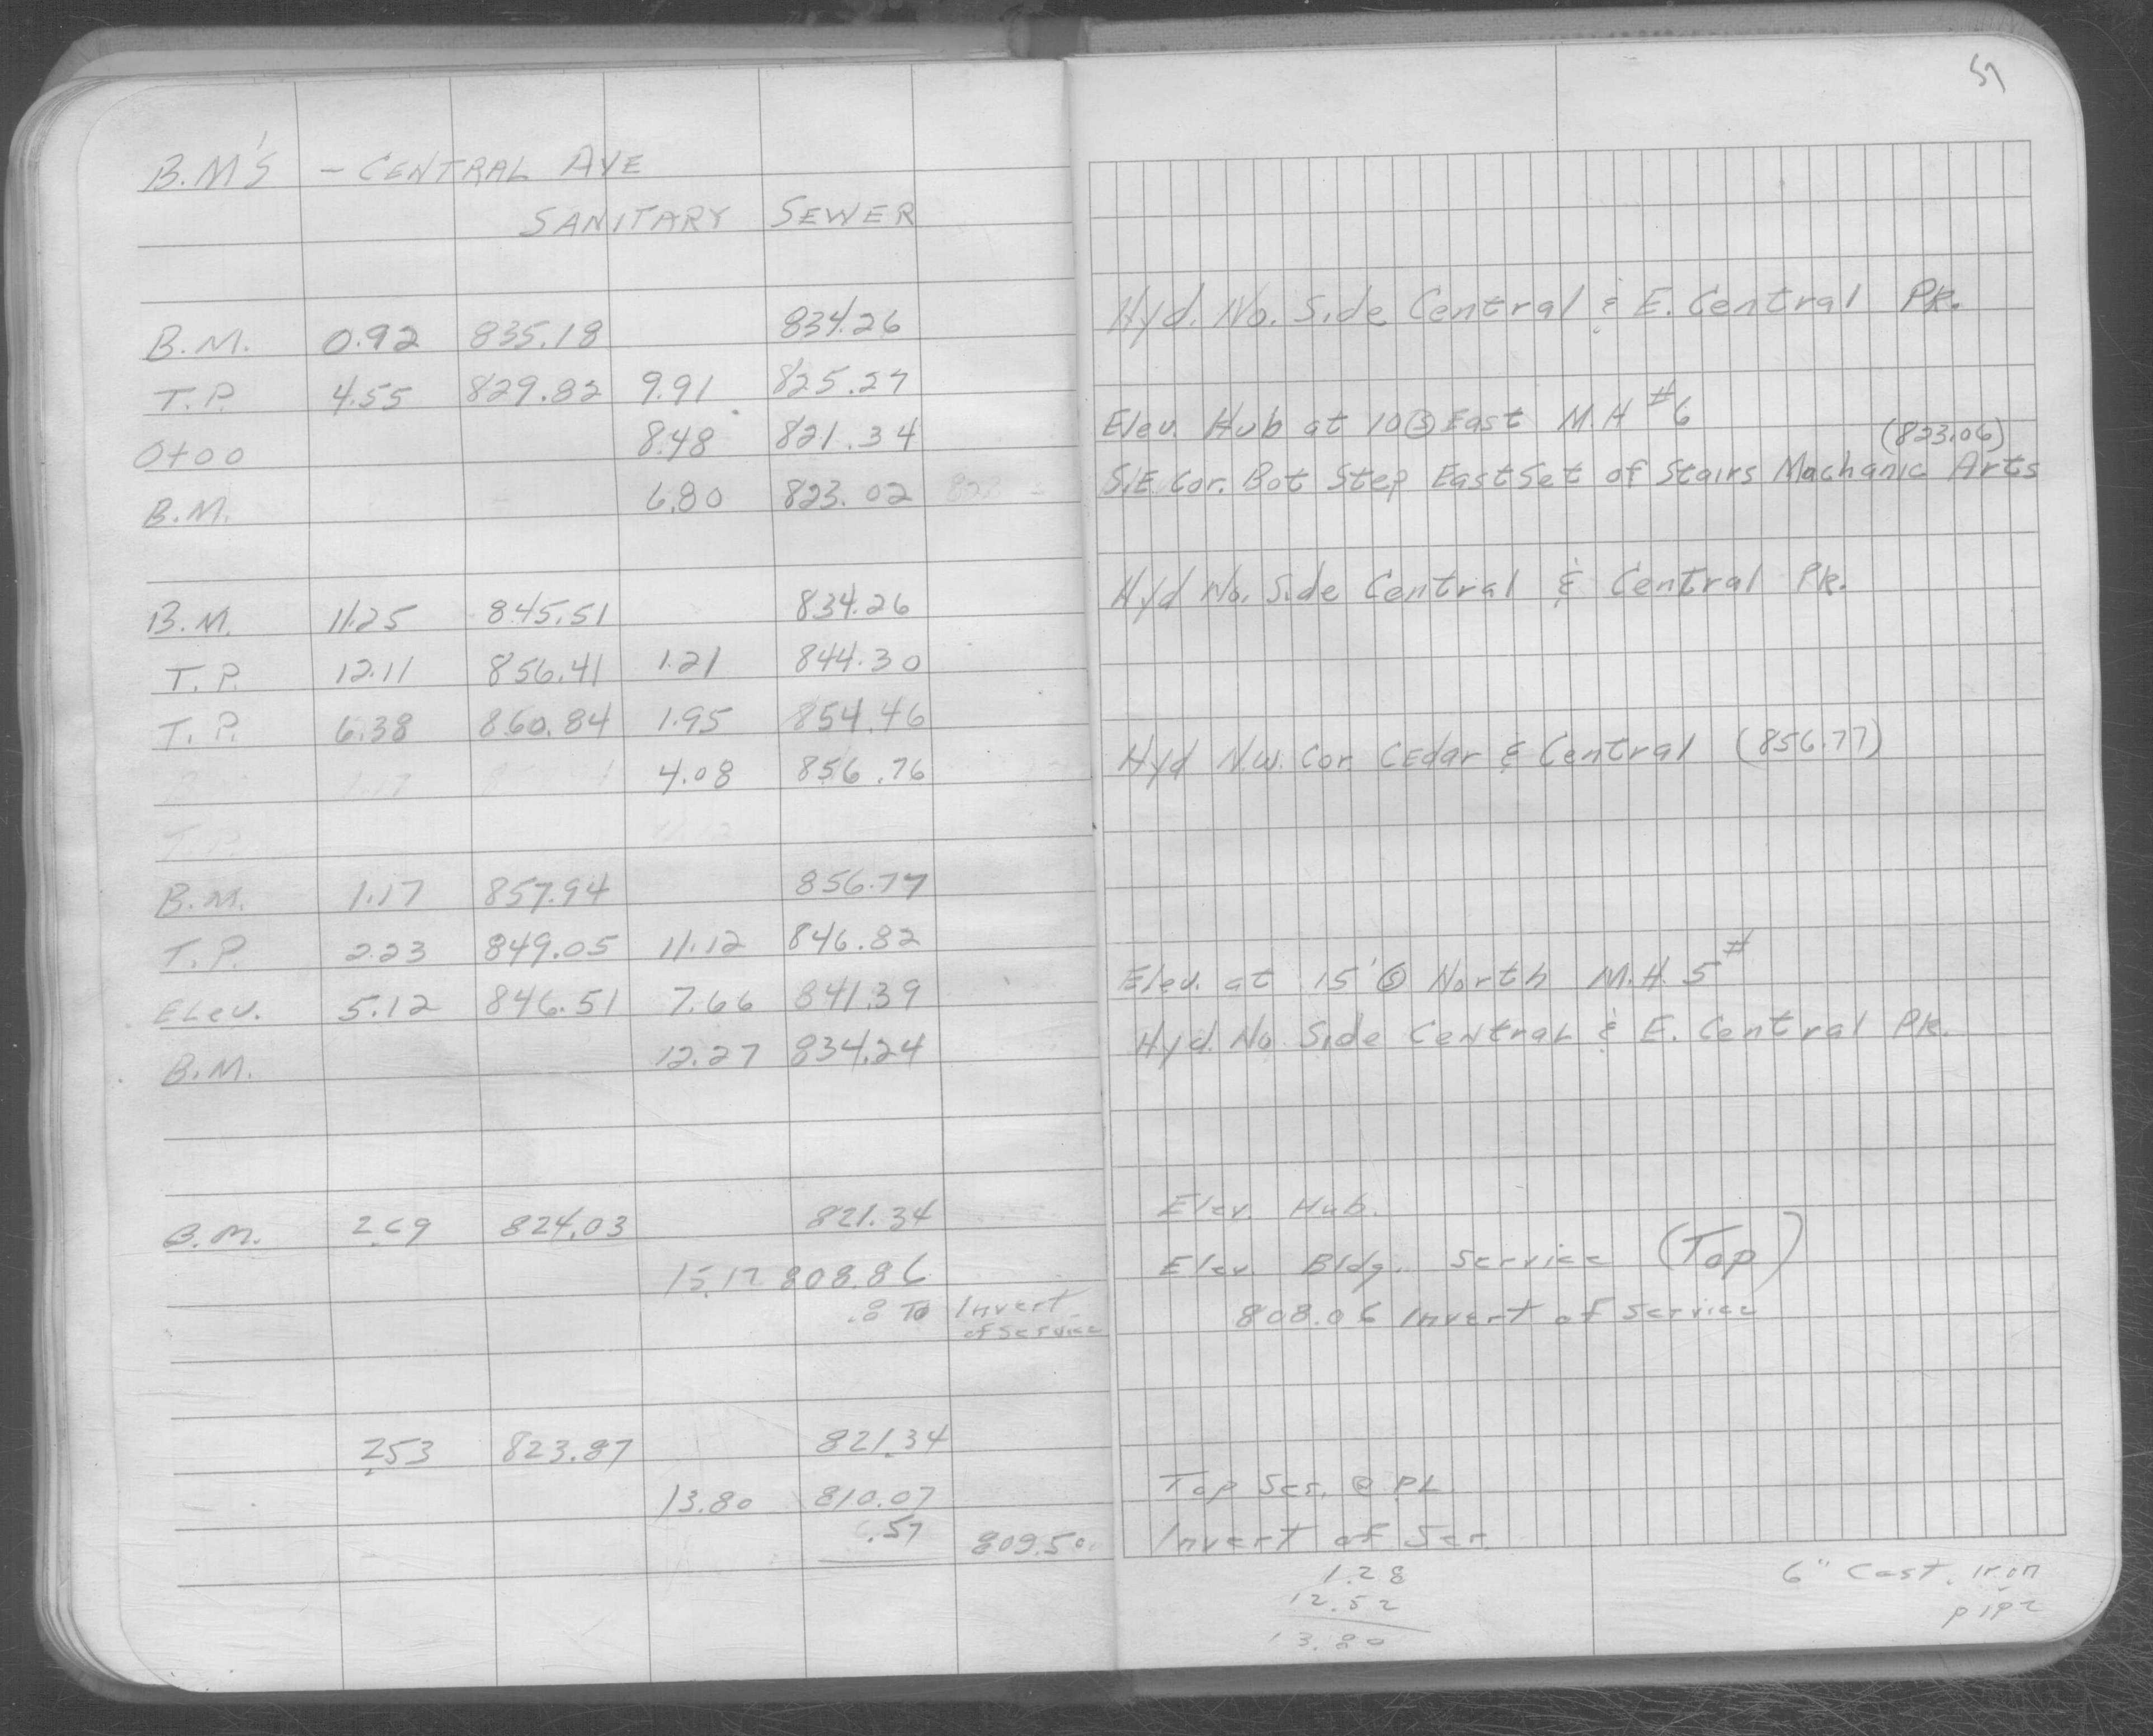 57
B.M'S - CENTRAL AVE
SANITARY SEWER
B.M. 0.92 835.18 834.26 Hyd. No. Side Central & E. Central Pk.
T.P. 4.55 829.82 9.91 825.27
0+00 8.48 821.34 Elev. Hub at 10 Ⓢ East M.H #6
(823.06)
B.M. 6.80 823.02 S.E. Cor. Bot Step East Set of Stairs Machanic Arts
B.M. 11.25 845.51 834.26 Hyd No. Side Central & Central Pk.
T.P. 12.11 856.41 1.21 844.30
T.P. 6.38 860.84 1.95 854.46
4.08 856.76 Hyd N.W. Cor. Cedar & Central (856.77)
T.P. 11.12
B.M. 1.17 857.94 856.77
T.P. 2.23 849.05 11.12 846.82
ELev. 5.12 846.51 7.66 841.39 Elev. at 15' Ⓢ North M.H. 5#
B.M. 12.27 834.24 Hyd. No Side Central & E. Central Pk.
B.M. 2.69 824.03 821.34 Elev. Hub.
15.17 808.86 Elev. Bldg. Service (Top)
.8 To Invert 808.06 Invert of Service
of Service
2.53 823.87 821.34
13.80 810.07 Top Ser. @ PL
.57 809.50 Invert of Ser.
1.28
12.52
13.80
6" Cast. iron
pipe